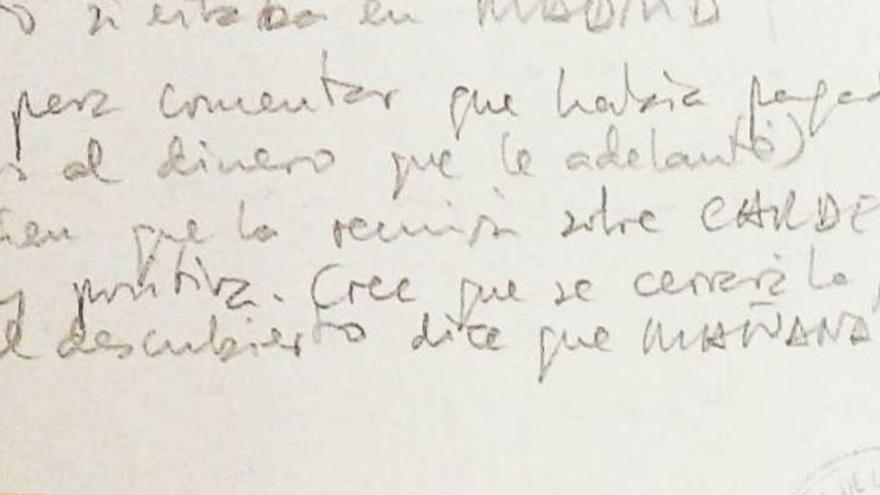 si estaba en MADRID
para comentar que había pagad
al dinero que le adelantó)
que la reunión sobre CARDE
y positiva. Cree que se cerrará la
el descubierto dice que MAÑANA
DE L